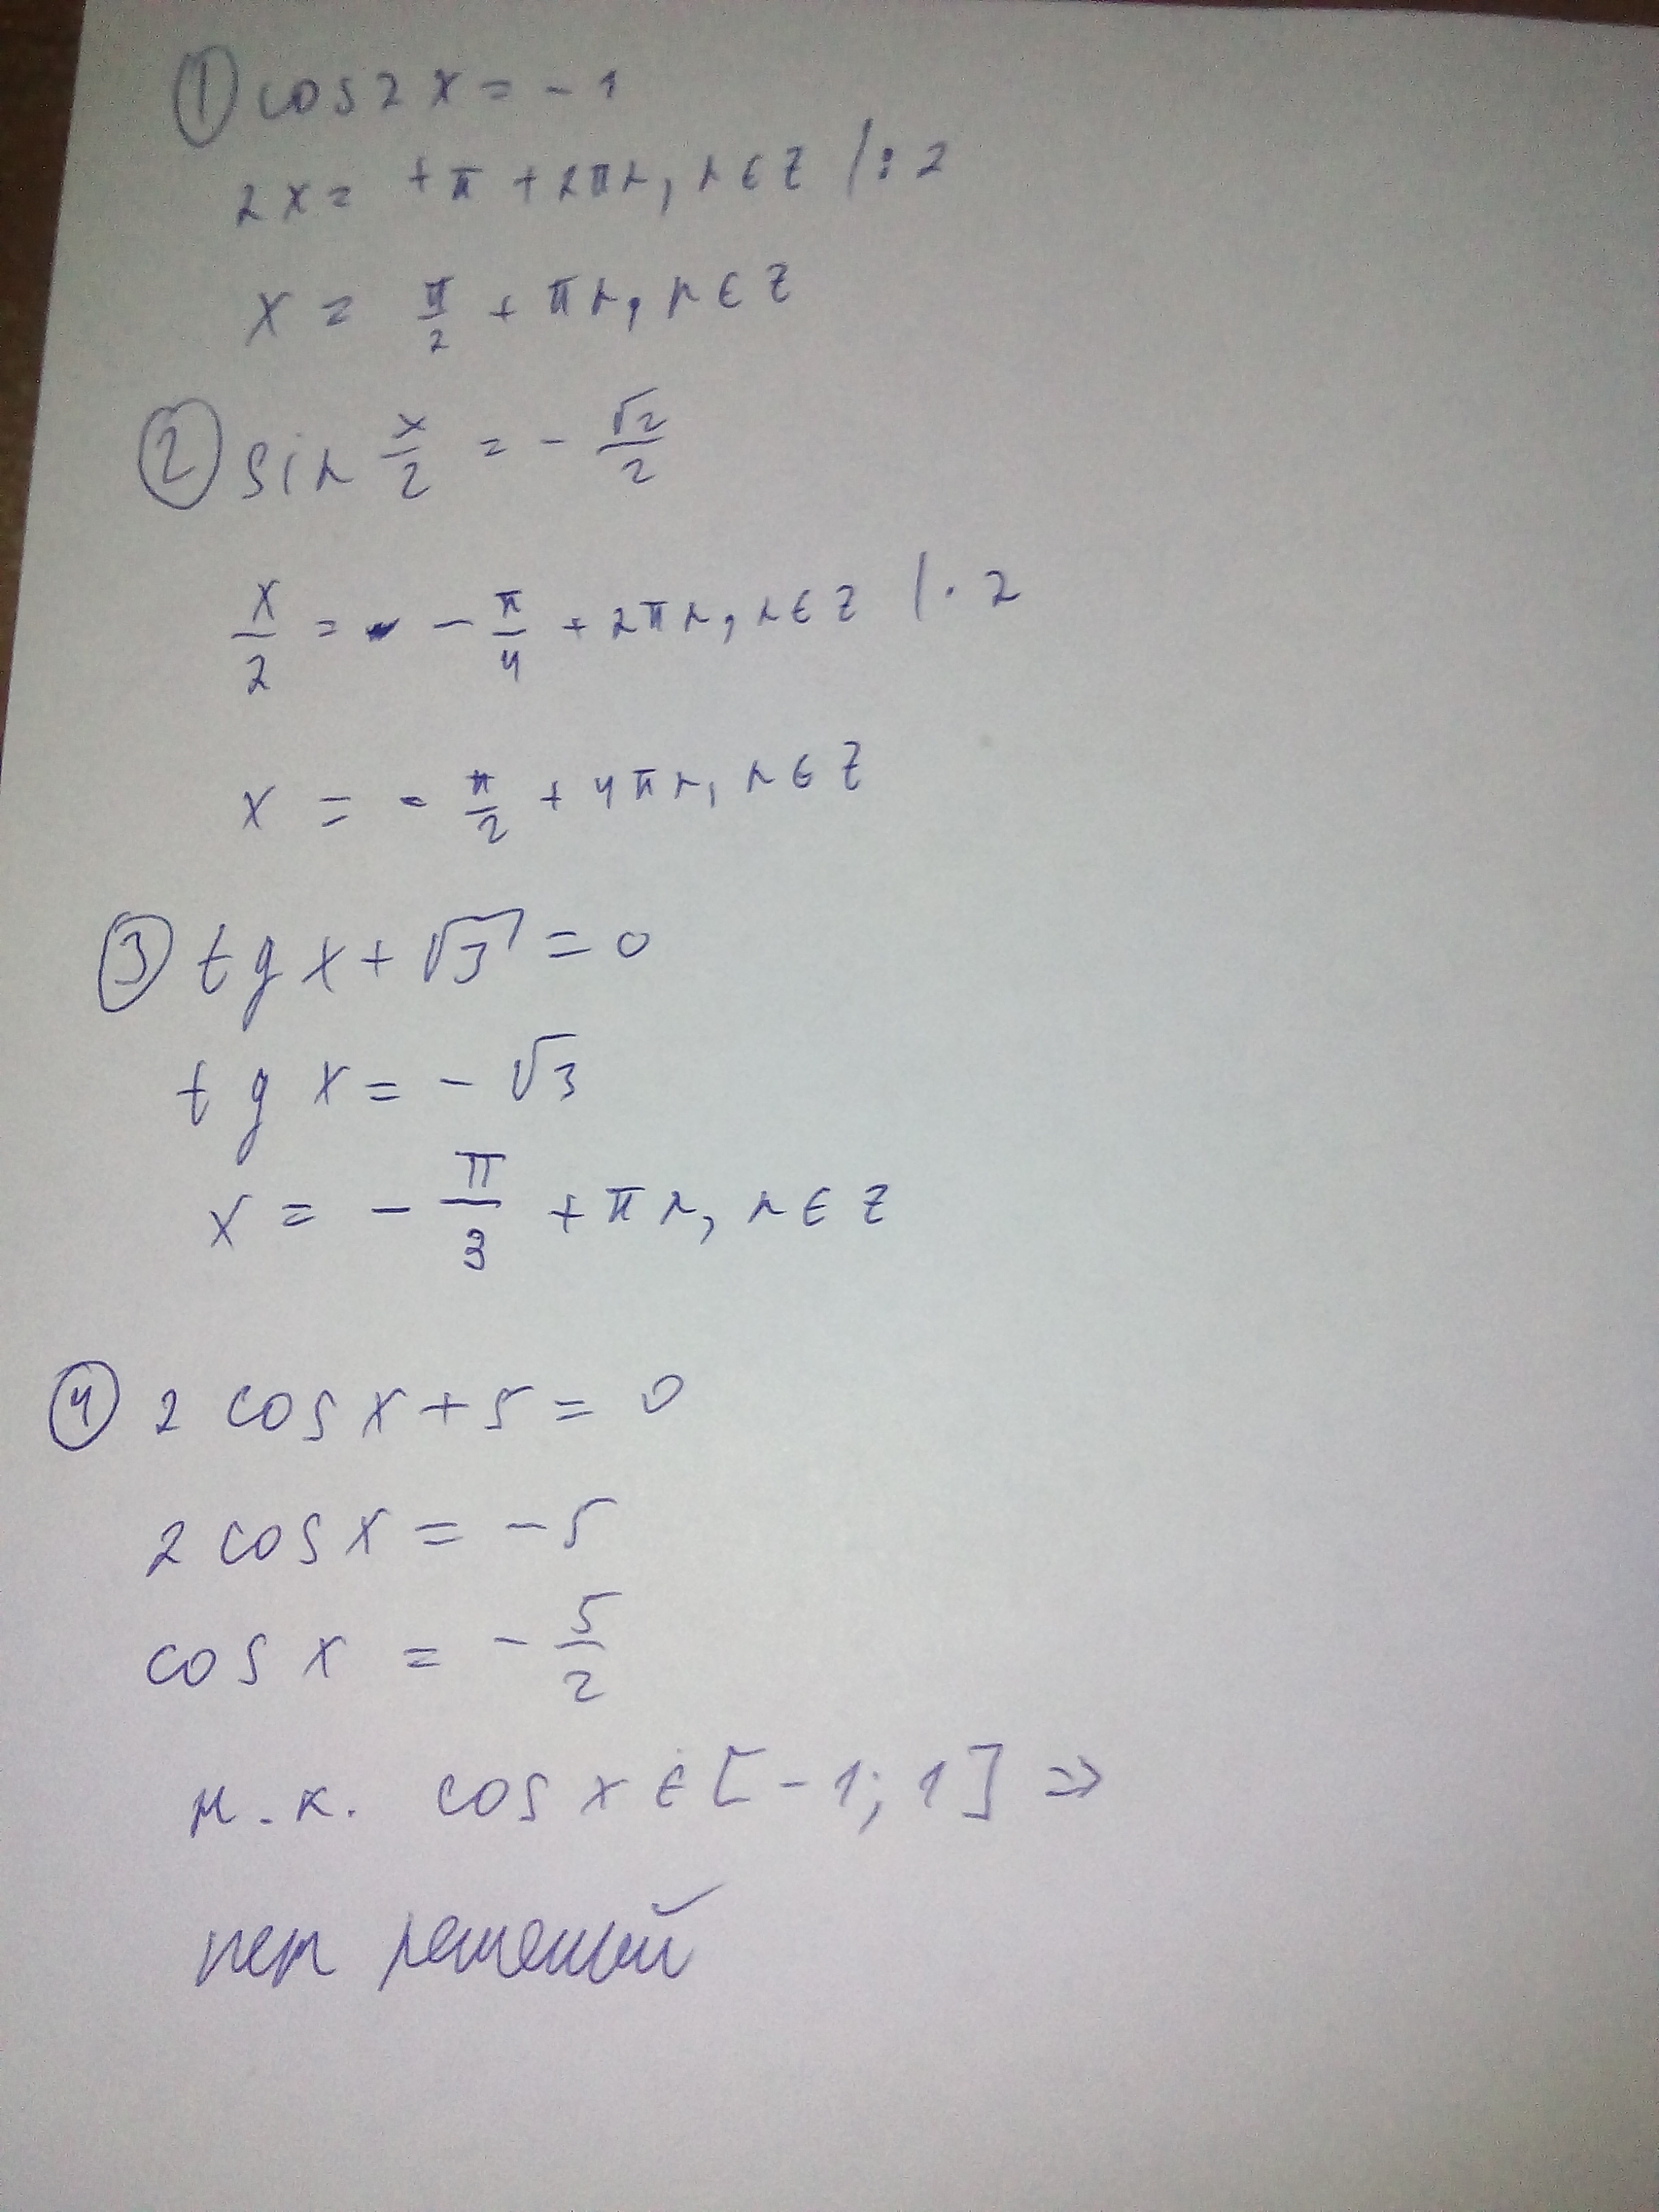 ① cos 2x = -1
2x = +π + 2πn, n ∈ Z /: 2
x = π/2 + πn, n ∈ Z
② sin x/2 = - √2/2
x/2 = - π/4 + 2πn, n ∈ Z | · 2
x = - π/2 + 4πn, n ∈ Z
③ tg x + √3 = 0
tg x = - √3
x = - π/3 + πn, n ∈ Z
④ 2 cos x + 5 = 0
2 cos x = -5
cos x = - 5/2
т.к. cos x ∈ [-1; 1] ⇒
нет решений